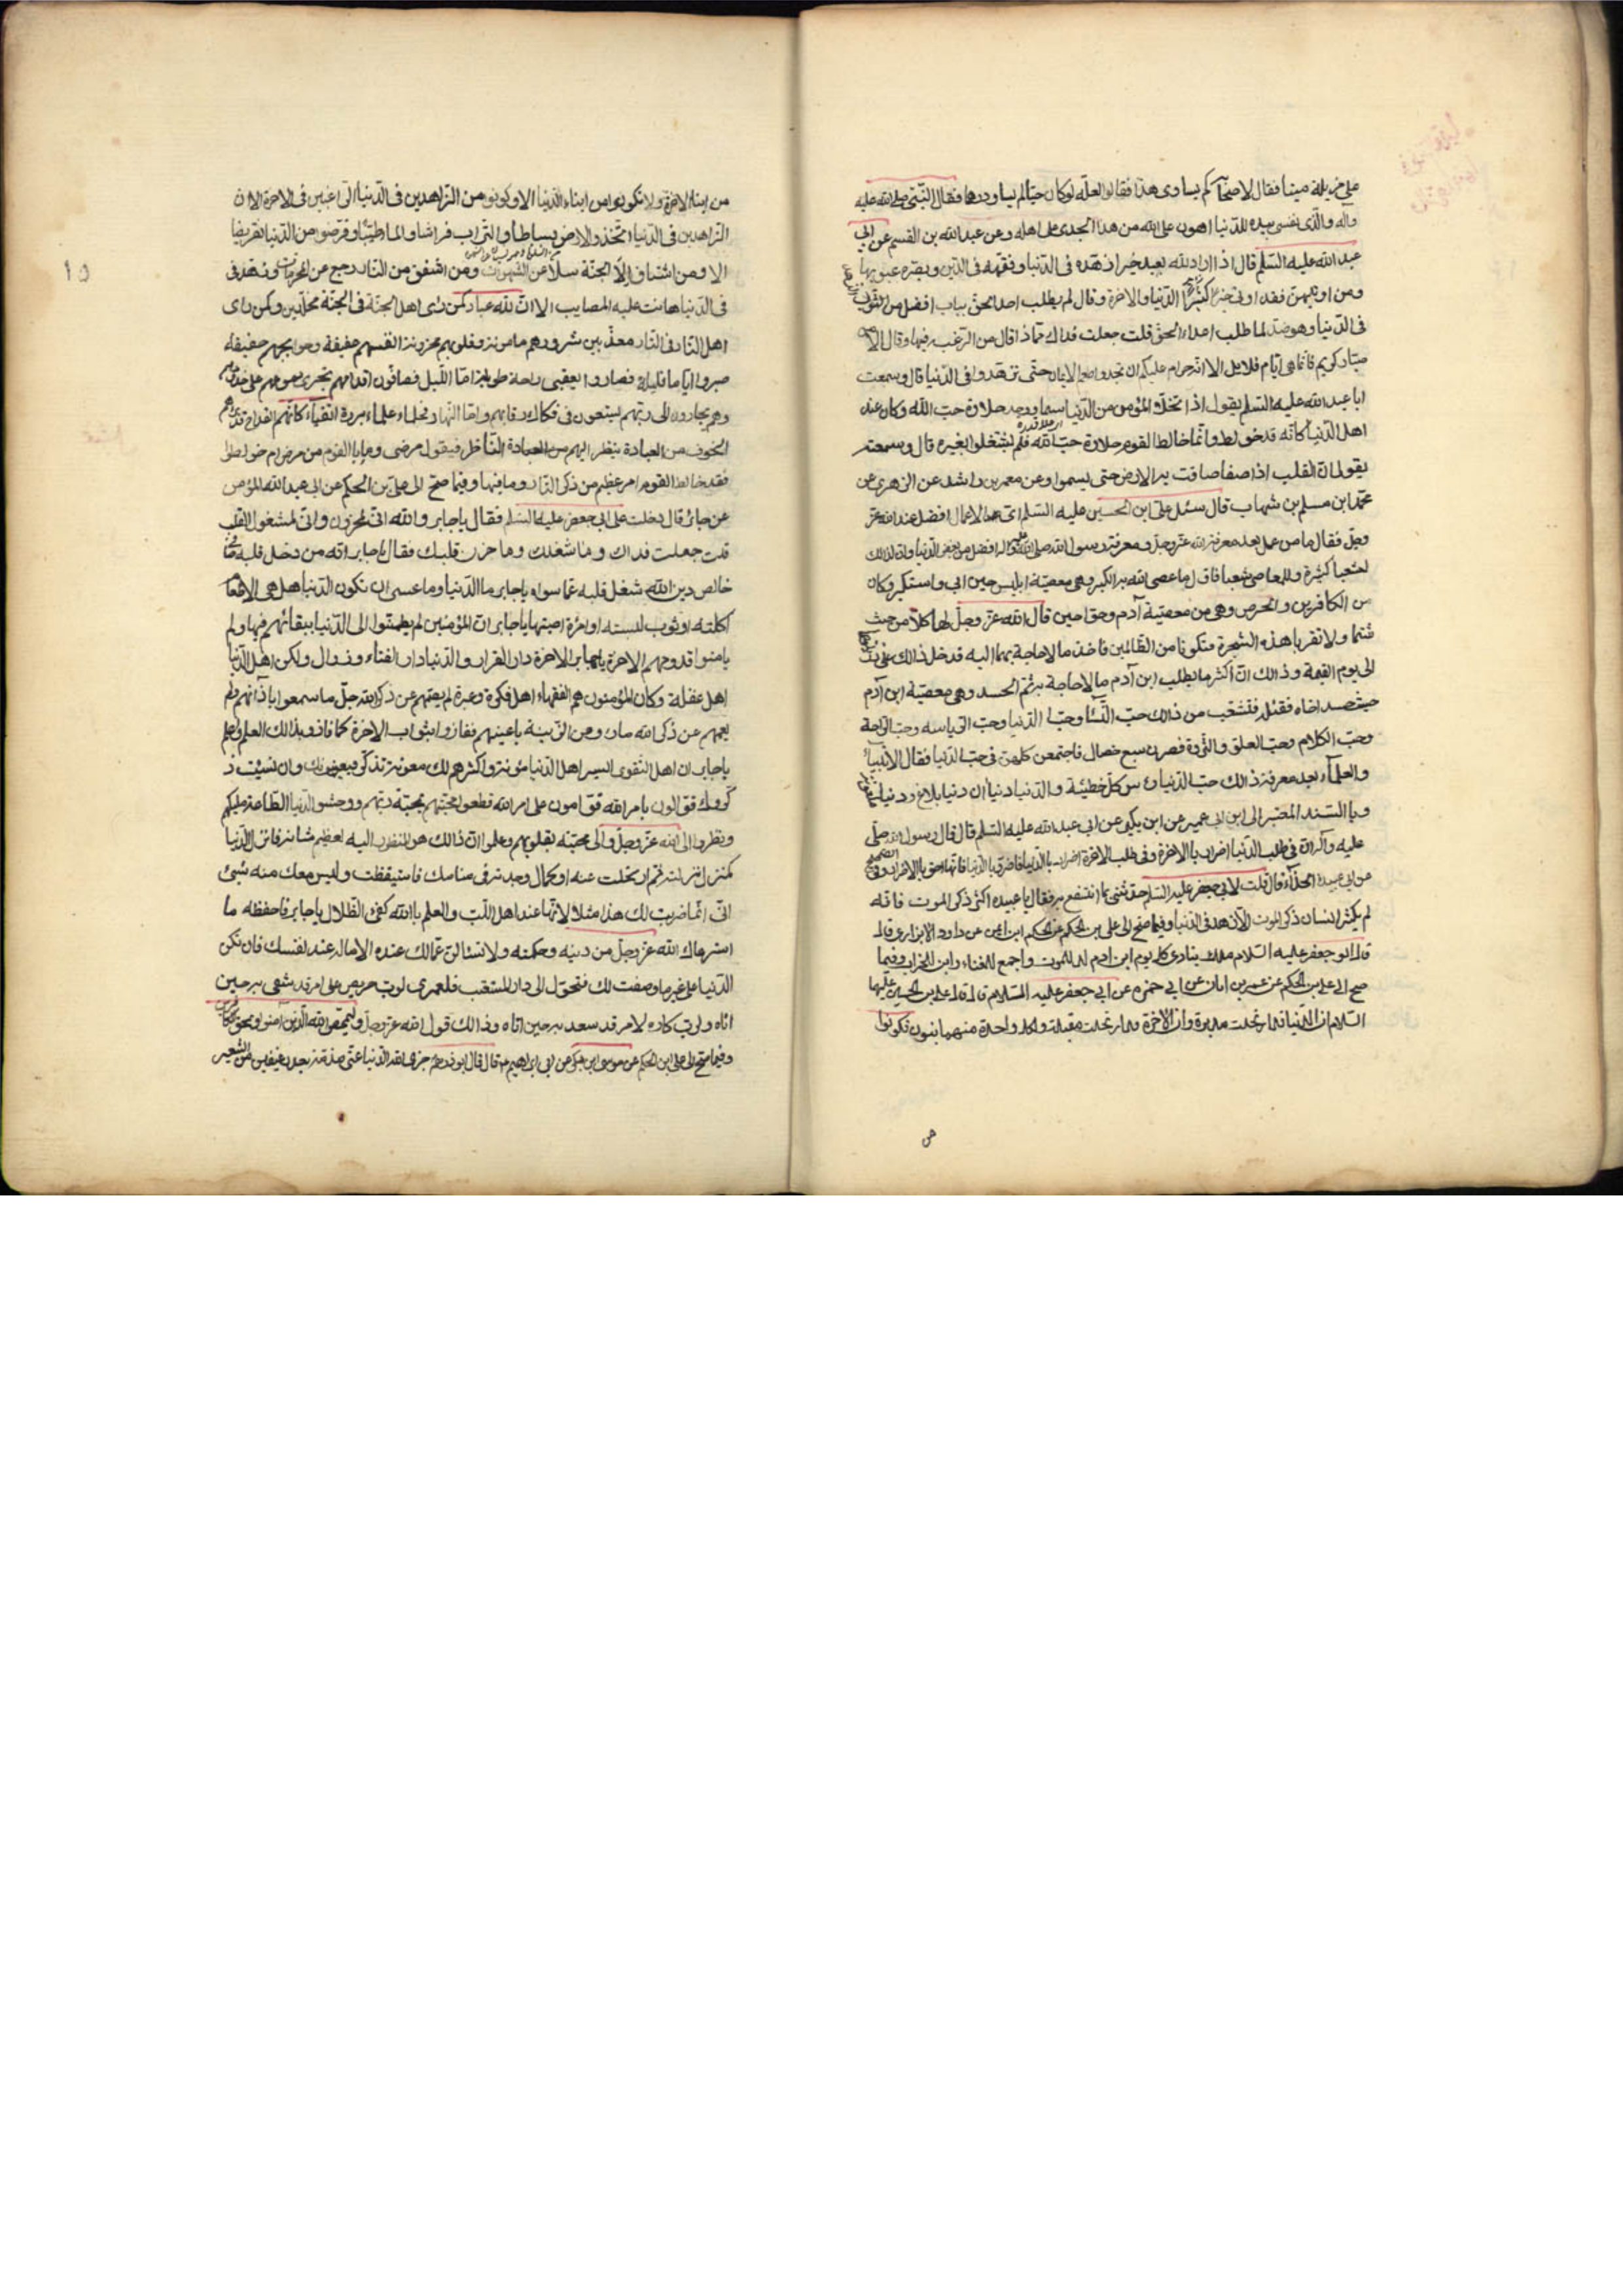 على مزبلة ميتا فقال لاصحابه كم يساوى هذا فقالوا لعله لوكان حيا لم يساو درهما فقال النبى صلى الله عليه
واله والذى نفسى بيده للدنيا اهون على الله من هذا الجدى على اهله وعن عبد الله بن القسم عن ابى
عبد الله عليه السلم قال اذا اراد الله بعبد خيرا زهده فى الدنيا وفقهه فى الدين وبصره عيوبها
ومن اوتيهن فقد اوتى خير الدنيا والاخرة وقال لم يطلب احد الحق بباب افضل من الزهد
فى الدنيا وهو ضد لما طلب اعداء الحق قلت جعلت فداك مماذا قال من الرغبة فيها وقال الا من
صبار كريم فانما هى ايام قلايل الا انه حرام عليكم ان تجدوا طعم الايمان حتى تزهدوا فى الدنيا قال وسمعت
ابا عبد الله عليه السلم يقول اذا تخلى المؤمن من الدنيا سما ووجد حلاوة حب الله وكان عند
اهل الدنيا كانه قد خولط وانما خالط القوم حلاوة حب الله فلم يشتغلوا بغيره قال وسمعته
يقول ان القلب اذا صفا ضاقت به الارض حتى يسموا وعن معمر بن راشد عن الزهرى عن
محمد ابن مسلم بن شهاب قال سئل على ابن الحسين عليه السلم اى الاعمال افضل عند الله عز
وجل فقال ما من عمل بعد معرفة الله عز وجل ومعرفة رسول الله صلى الله عليه واله افضل من بغض الدنيا وان لذالك
لشعبا كثيرة وللمعاصى شعبا فاول ما عصى الله به الكبر وهى معصية ابليس حين ابى واستكبر وكان
من الكافرين والحرص وهى من معصية آدم وحوا حين قال الله عز وجل لهما كلا من حيث
شئتما ولا تقربا هذه الشجرة فتكونا من الظالمين فاخذا ما لا حاجة بهما اليه فدخل ذالك على ذريتهما
الى يوم القيمة وذالك ان اكثر ما يطلب ابن آدم ما لا حاجة به ثم الحسد وهى معصية ابن آدم
حيث حسد اخاه فقتله فتشعب من ذالك حب النساء وحب الدنيا وحب الرياسة وحب الراحة
وحب الكلام وحب العلو والثروة فصرن سبع خصال فاجتمعن كلهن فى حب الدنيا فقال الانبياء
والعلماء بعد معرفة ذالك حب الدنيا راس كل خطيئة والدنيا دنياآن دنيا بلاغ ودنيا
وبا السند المعتبر الى ابن ابى عمير عن ابن بكير عن ابى عبد الله عليه السلم قال قال رسول الله صلى
عليه وآله ان فى طلب الدنيا اضرارا بالاخرة وفى طلب الاخرة اضرارا بالدنيا فاضروا بالدنيا فانها احق بالاضرار وفى الصحيح
عن ابى عبيدة الحذآء قال قلت لابى جعفر عليه السلم حدثنى بما انتفع به فقال يا عبيدة اكثر ذكر الموت فانه
لم يكثر انسان ذكر الموت الا زهد فى الدنيا وفيما صح الى على بن الحكم عن الحكم ابن ايمن عن داود الابزارى قال
قال ابو جعفر عليه السلام ملك ينادى كل يوم ابن ادم لد للموت واجمع للفناء وابن للخراب وفيما
صح الى على بن الحكم عن عمر بن ابان عن ابى حمزه عن ابى جعفر عليه السلام قال قال على بن الحسين عليهما
السلام ان الدنيا قد ارتحلت مدبرة وان الاخرة قد ارتحلت مقبلة ولكل واحدة منهما بنون فكونوا
من
من ابناء الاخرة ولا تكونوا من ابناء الدنيا الا وكونوا من الزاهدين فى الدنيا الراغبين فى الاخرة الا ان
الزاهدين فى الدنيا اتخذوا الارض بساطا والتراب فراشا والماء طيبا وقرضوا من الدنيا تقريضا
الا ومن اشتاق الى الجنة سلا عن الشهوات ومن اشفق من النار رجع عن المحرمات ومن زهد فى
فى الدنيا هانت عليه المصايب الا ان لله عبادا كمن راى اهل الجنة فى الجنة مخلدين وكمن راى
اهل النار فى النار معذبين شرورهم مامونة وقلوبهم محزونة انفسهم عفيفة وحوايجهم خفيفة
صبروا اياما قليلة فصاروا بعقبى راحة طويلة اما الليل فصافون اقدامهم تجرى دموعهم على خدودهم
وهم يجارون الى ربهم يسعون فى فكاك رقابهم واما النهار فحلماء علماء بررة اتقياء كانهم القداح قد براهم
الخوف من العبادة ينظر اليهم الناظر فيقول مرضى وما بالقوم من مرض ام خولطوا
فقد خالط القوم امر عظيم من ذكر النار وما فيها وفيما صح الى على بن الحكم عن ابى عبد الله المؤمن
عن جابر قال دخلت على ابى جعفر عليه السلم فقال يا جابر والله انى لمحزون وانى لمشغول القلب
قلت جعلت فداك وما شغلك وما حزن قلبك فقال يا جابر انه من دخل قلبه صافى
خالص دين الله شغل قلبه عما سواه يا جابر ما الدنيا وما عسى ان تكون الدنيا هل هى الا طعاما
اكلته او ثوب لبسته او امرءة اصبتها يا جابر ان المؤمنين لم يطمئنوا الى الدنيا ببقائهم فيها ولم
يامنوا قدومهم الاخرة يا جابر الاخرة دار القرار والدنيا دار الفناء وزوال ولكن اهل الدنيا
اهل غفلة وكان المؤمنون هم الفقهاء اهل فكرة وعبرة لم يصمهم عن ذكر الله جل ما سمعوا باذانهم ولم
يعمهم عن ذكر الله ما راوا من الزينة باعينهم ففازوا بثواب الاخرة كما فازوا بذالك العلم واعلم
يا جابر ان اهل التقوى ايسر اهل الدنيا مؤنة واكثرهم لك معونة تذكر فيعينونك وان نسيت ذ
كروك قوالون بامر الله قوامون على امر الله قطعوا محبتهم بمحبة ربهم ووحشوا الدنيا لطاعة مليكهم
ونظروا الى الله عز وجل والى محبته بقلوبهم وعلموا ان ذالك هو المنظور اليه لعظيم شانه فانزل الدنيا
كمنزل نزلته ثم ارتحلت عنه او كمال وجدته فى منامك فاستيقظت وليس معك منه شئ
انى انما ضربت لك هذا مثلا لانها عند اهل اللب والعلم بالله كفئ الظلال يا جابر فاحفظه ما
استرعاك الله عز وجل من دينه وحكمته ولا تسئالن عما لك عنده الا ما له عند نفسك فان تكن
الدنيا على غير ما وصفت لك فتحول الى دار المستعتب فلعمرى لرب حريص على امر قد شقى به حين
اتاه ولرب كاره لامر قد سعد به حين اتاه وذالك قول الله عز وجل وليمحص الله الذين آمنوا ويمحق الكافرين
وفيما صح الى على ابن الحكم عن موسى ابن بكر عن ابى ابراهيم ع قال قال ابوذر ره جزى الله الدنيا عنى مذمة بعد رغيفين من الشعير